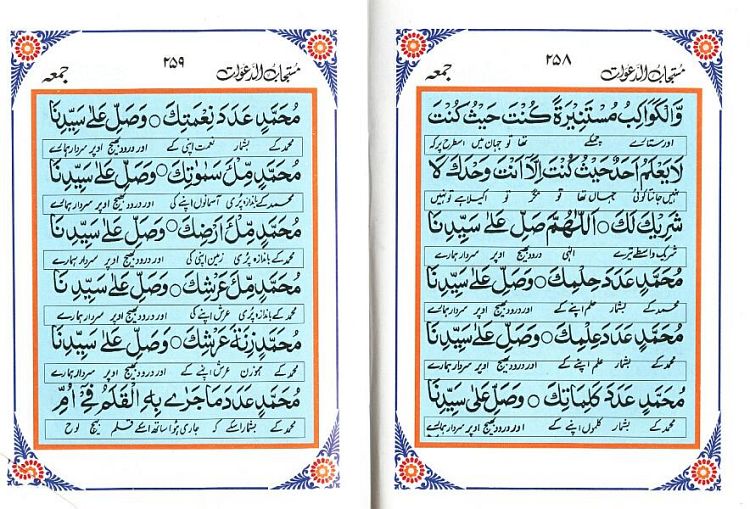 مستجاب الدعوات ۲۵۸ جمعه
وَّالْكَوَاكِبُ مُسْتَنِيْرَةً كُنْتَ حَيْثُ كُنْتَ
اور ستارے چمکے تھا تو جہاں میں اسطرح پر کہ
لَا يَعْلَمُ اَحَدٌ حَيْثُ كُنْتَ اِلَّا اَنْتَ وَحْدَكَ لَا
نہیں جانتا کوئی جہاں تھا تو مگر تو اکیلا ہے تو نہیں
شَرِيْكَ لَكَ ○ اَللّٰهُمَّ صَلِّ عَلٰى سَيِّدِنَا
شریک واسطے تیرے الٰہی درود بھیج اوپر سردار ہمارے
مُحَمَّدٍ عَدَدَ حِلْمِكَ ○ وَصَلِّ عَلٰى سَيِّدِنَا
محمد کے بشمار حلم اپنے کے اور درود بھیج اوپر سردار ہمارے
مُحَمَّدٍ عَدَدَ عِلْمِكَ ○ وَصَلِّ عَلٰى سَيِّدِنَا
محمد کے بشمار علم اپنے کے اور درود بھیج اوپر سردار ہمارے
مُحَمَّدٍ عَدَدَ كَلِمَاتِكَ ○ وَصَلِّ عَلٰى سَيِّدِنَا
محمد کے بشمار کلموں اپنے کے اور درود بھیج اوپر سردار ہمارے
مستجاب الدعوات ۲۵۹ جمعه
مُحَمَّدٍ عَدَدَ نِعْمَتِكَ ○ وَصَلِّ عَلٰى سَيِّدِنَا
محمد کے بشمار نعمت اپنی کے اور درود بھیج اوپر سردار ہمارے
مُحَمَّدٍ مِّلْءَ سَمٰوٰتِكَ ○ وَصَلِّ عَلٰى سَيِّدِنَا
محمد کے باندازہ پُری آسمانوں اپنے کی اور درود بھیج اوپر سردار ہمارے
مُحَمَّدٍ مِّلْءَ اَرْضِكَ ○ وَصَلِّ عَلٰى سَيِّدِنَا
محمد کے باندازہ پُری زمین اپنی کی اور درود بھیج اوپر سردار ہمارے
مُحَمَّدٍ مِّلْءَ عَرْشِكَ ○ وَصَلِّ عَلٰى سَيِّدِنَا
محمد کے باندازہ پُری عرش اپنے کی اور درود بھیج اوپر سردار ہمارے
مُحَمَّدٍ زِنَةَ عَرْشِكَ ○ وَصَلِّ عَلٰى سَيِّدِنَا
محمد کے ہموزن عرش اپنے کے اور درود بھیج اوپر سردار ہمارے
مُحَمَّدٍ عَدَدَ مَا جَرٰى بِهِ الْقَلَمُ فِيْ اُمِّ
محمد کے بشمار اسکے کہ جاری ہوا ساتھ اسکے قلم بیچ لوح